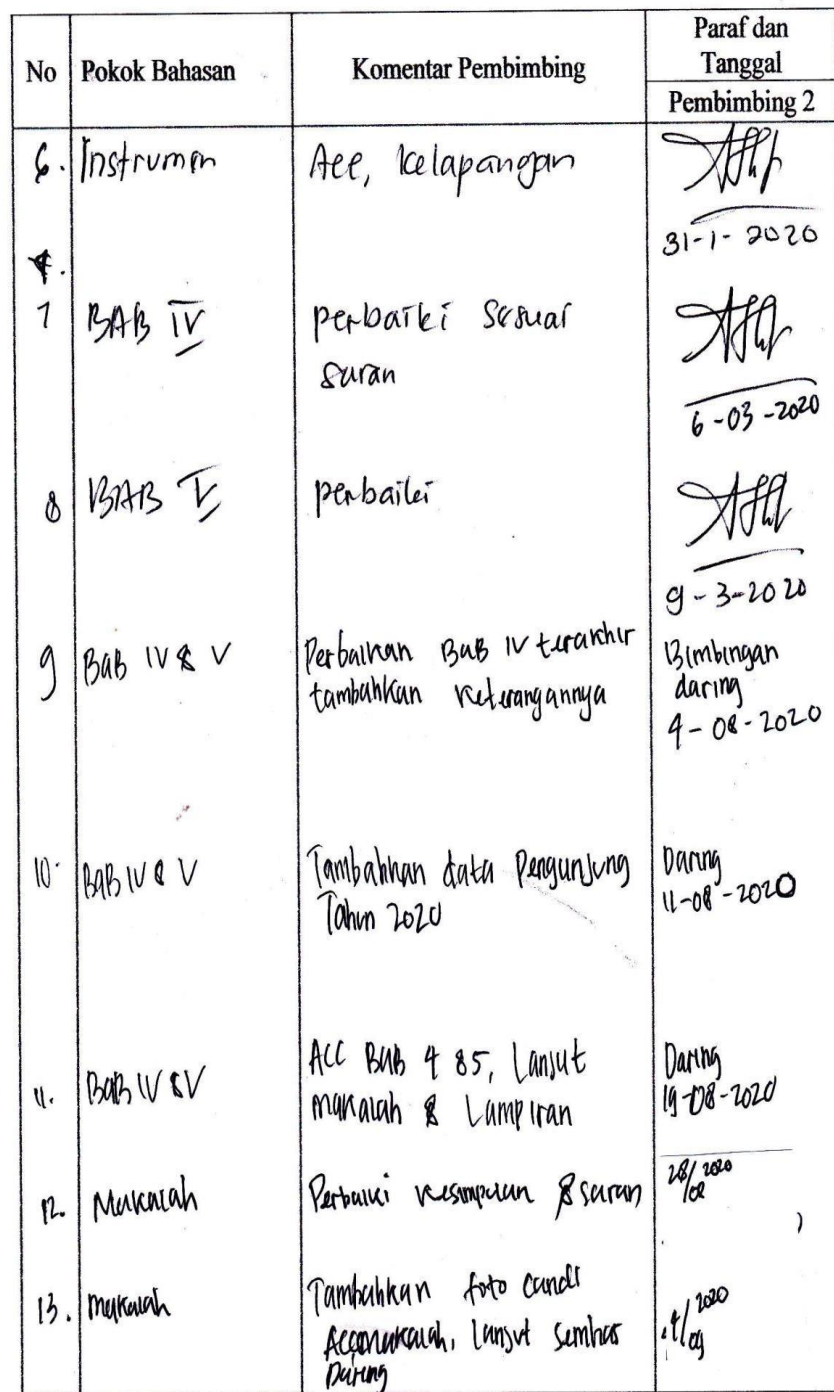 No Pokok Bahasan Komentar Pembimbing Paraf dan Tanggal
Pembimbing 2
6. Instrumen Acc, kelapangan
31-1-2020
7 BAB IV perbaiki sesuai
saran
6-03-2020
8 BAB V perbaiki
9-3-2020
9 BAB IV & V Perbaikan BAB IV terakhir Bimbingan
tambahkan keterangannya daring
4-08-2020
10. BAB IV & V Tambahkan data Pengunjung Daring
Tahun 2020 11-08-2020
11. BAB IV & V ACC BAB 4 & 5, Lanjut Daring
makalah & Lampiran 19-08-2020
12. Makalah Perbaiki kesimpulan & saran 28/08 2020
13. makalah Tambahkan foto candi
Acc makalah, lanjut semhas /09 2020
Daring